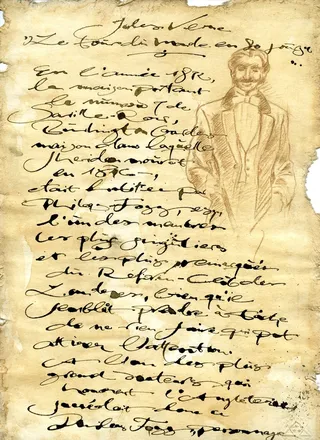 Jules Verne
"Le Tour du Monde en 80 jours"
En l'année 1872,
la maison portant
le numéro 7 de
Saville-Row,
Burlington Gardens
maison dans laquelle
Sheridan mourut
en 181
était habitée par
Philéas Fogg, esq,
l'un des membres
les plus singuliers
et les plus remarqués
du Reform-Club de
Londres, bien qu'il
semblât prendre à tâche
de ne rien faire qui pût
attirer l'attention.
A l'un des plus
grand orateurs qui
honorent l'Angleterre,
succédait donc ce
Phileas Fogg, personnage